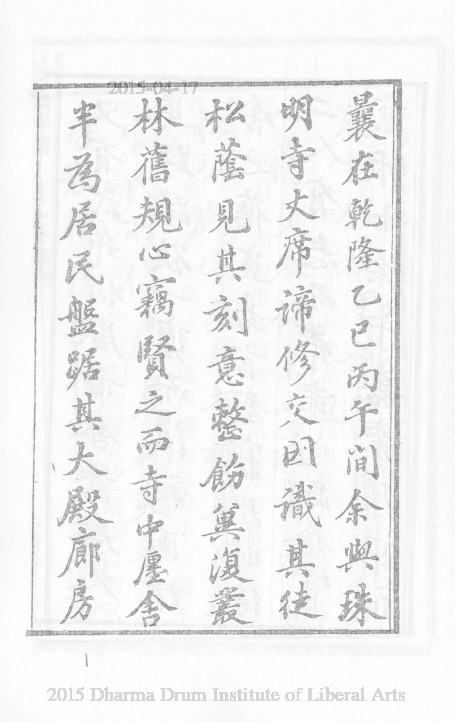 2015-04-17
曩在乾隆乙巳丙午間余與珠
明寺丈席諦修交因識其徒
松蔭見其刻意整飭冀復叢
林舊規心竊賢之而寺中廛舍
半為居民盤踞其大殿廊房
1
2015 Dharma Drum Institute of Liberal Arts